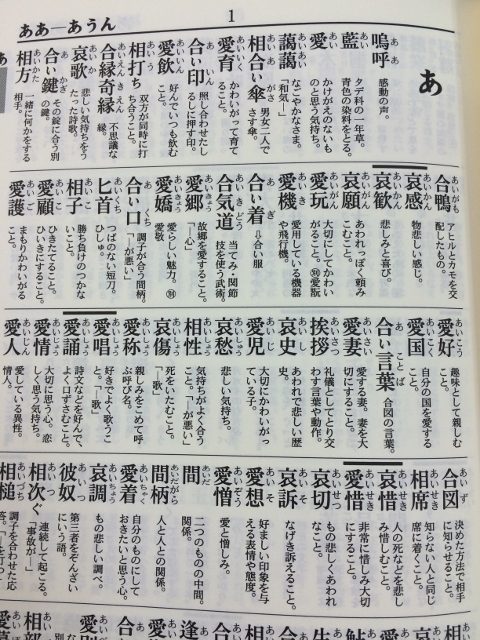 ああ―あうん
1
あ
嗚呼 ああ 感動の声。
藍 あい タデ科の一年草。青色の染料をとる。
愛 あい かけがえのないものと思う気持ち。
藹藹 あいあい なごやかなさま。「和気―」
相合い傘 あいあいがさ 男女二人でさす傘。
愛育 あいいく かわいがって育てること。
合い印 あいいん 照し合わせたしるしに押す印。
愛飲 あいいん 好んでいつも飲むこと。
相打ち あいうち 双方が同時に打ち合うこと。
合縁奇縁 あいえんきえん 不思議な縁。
哀歌 あいか 悲しい気持ちをうたった詩歌。
合い鍵 あいかぎ その錠に合う別の鍵。
相方 あいかた 一緒に何かをする相手。
合鴨 あいがも アヒルとカモを交配したもの。
哀感 あいかん 物悲しい感じ。
哀歓 あいかん 悲しみと喜び。
哀願 あいがん あわれっぽく頼みこむこと。
愛玩 あいがん 大切にしてかわいがること。別愛翫
愛機 あいき 愛用している機器や飛行機。
合い着 あいぎ ⇩合い服
合気道 あいきどう 当てみ・関節技を使う武術。
愛郷 あいきょう 故郷を愛すること。「―心」
愛嬌 あいきょう 愛らしい魅力。別愛敬
合い口 あいくち 調子が合う間柄。「―が悪い」
匕首 あいくち つばのない短刀。ひしゅ。
相子 あいこ 勝ち負けのつかないこと。
愛顧 あいこ ひきたてること。ひいきにすること。
愛護 あいご まもりかわいがること。
愛好 あいこう 趣味として親しむこと。
愛国 あいこく 自分の国を愛すること。
合い言葉 あいことば 合図の言葉。
愛妻 あいさい 愛する妻。妻を大切にすること。
挨拶 あいさつ 礼儀としてとり交わす言葉や動作。
哀史 あいし あわれで悲しい歴史。
愛児 あいじ 大切にかわいがっている子。
哀愁 あいしゅう 悲しい気持ち。
相性 あいしょう 気持ちがよく合うこと。「―が悪い」
哀傷 あいしょう 死をいたむこと。「―歌」
愛称 あいしょう 親しみをこめて呼ぶ呼び名。
愛唱 あいしょう 好きでよく歌うこと。「―歌」
愛誦 あいしょう 詩文などを好んで、よく口ずさむこと。
愛情 あいじょう 大切に思う心。恋しく思う気持ち。
愛人 あいじん 愛している異性。情人。
合図 あいず 決めた方法で相手に知らせること。
相席 あいせき 知らない人と同じ席に着くこと。
哀惜 あいせき 人の死などを悲しみ惜しむこと。
愛惜 あいせき 非常に惜しみ大切にすること。
哀切 あいせつ もの悲しくあわれなこと。
哀訴 あいそ なげき訴えること。
愛想 あいそ 好ましい印象を与える表情や態度。
愛憎 あいぞう 愛と憎しみ。
間 あいだ 二つのものの中間。関係。
間柄 あいだがら 人と人との関係。
愛着 あいちゃく 自分のものにしておきたいと思う心。
哀調 あいちょう もの悲しい調べ。
彼奴 あいつ 第三者をぞんざいにいう語。
相次ぐ あいつぐ 連続して起こる。「事故が―」
相槌 あいづち 調子を合わせた応答。「―を打つ」